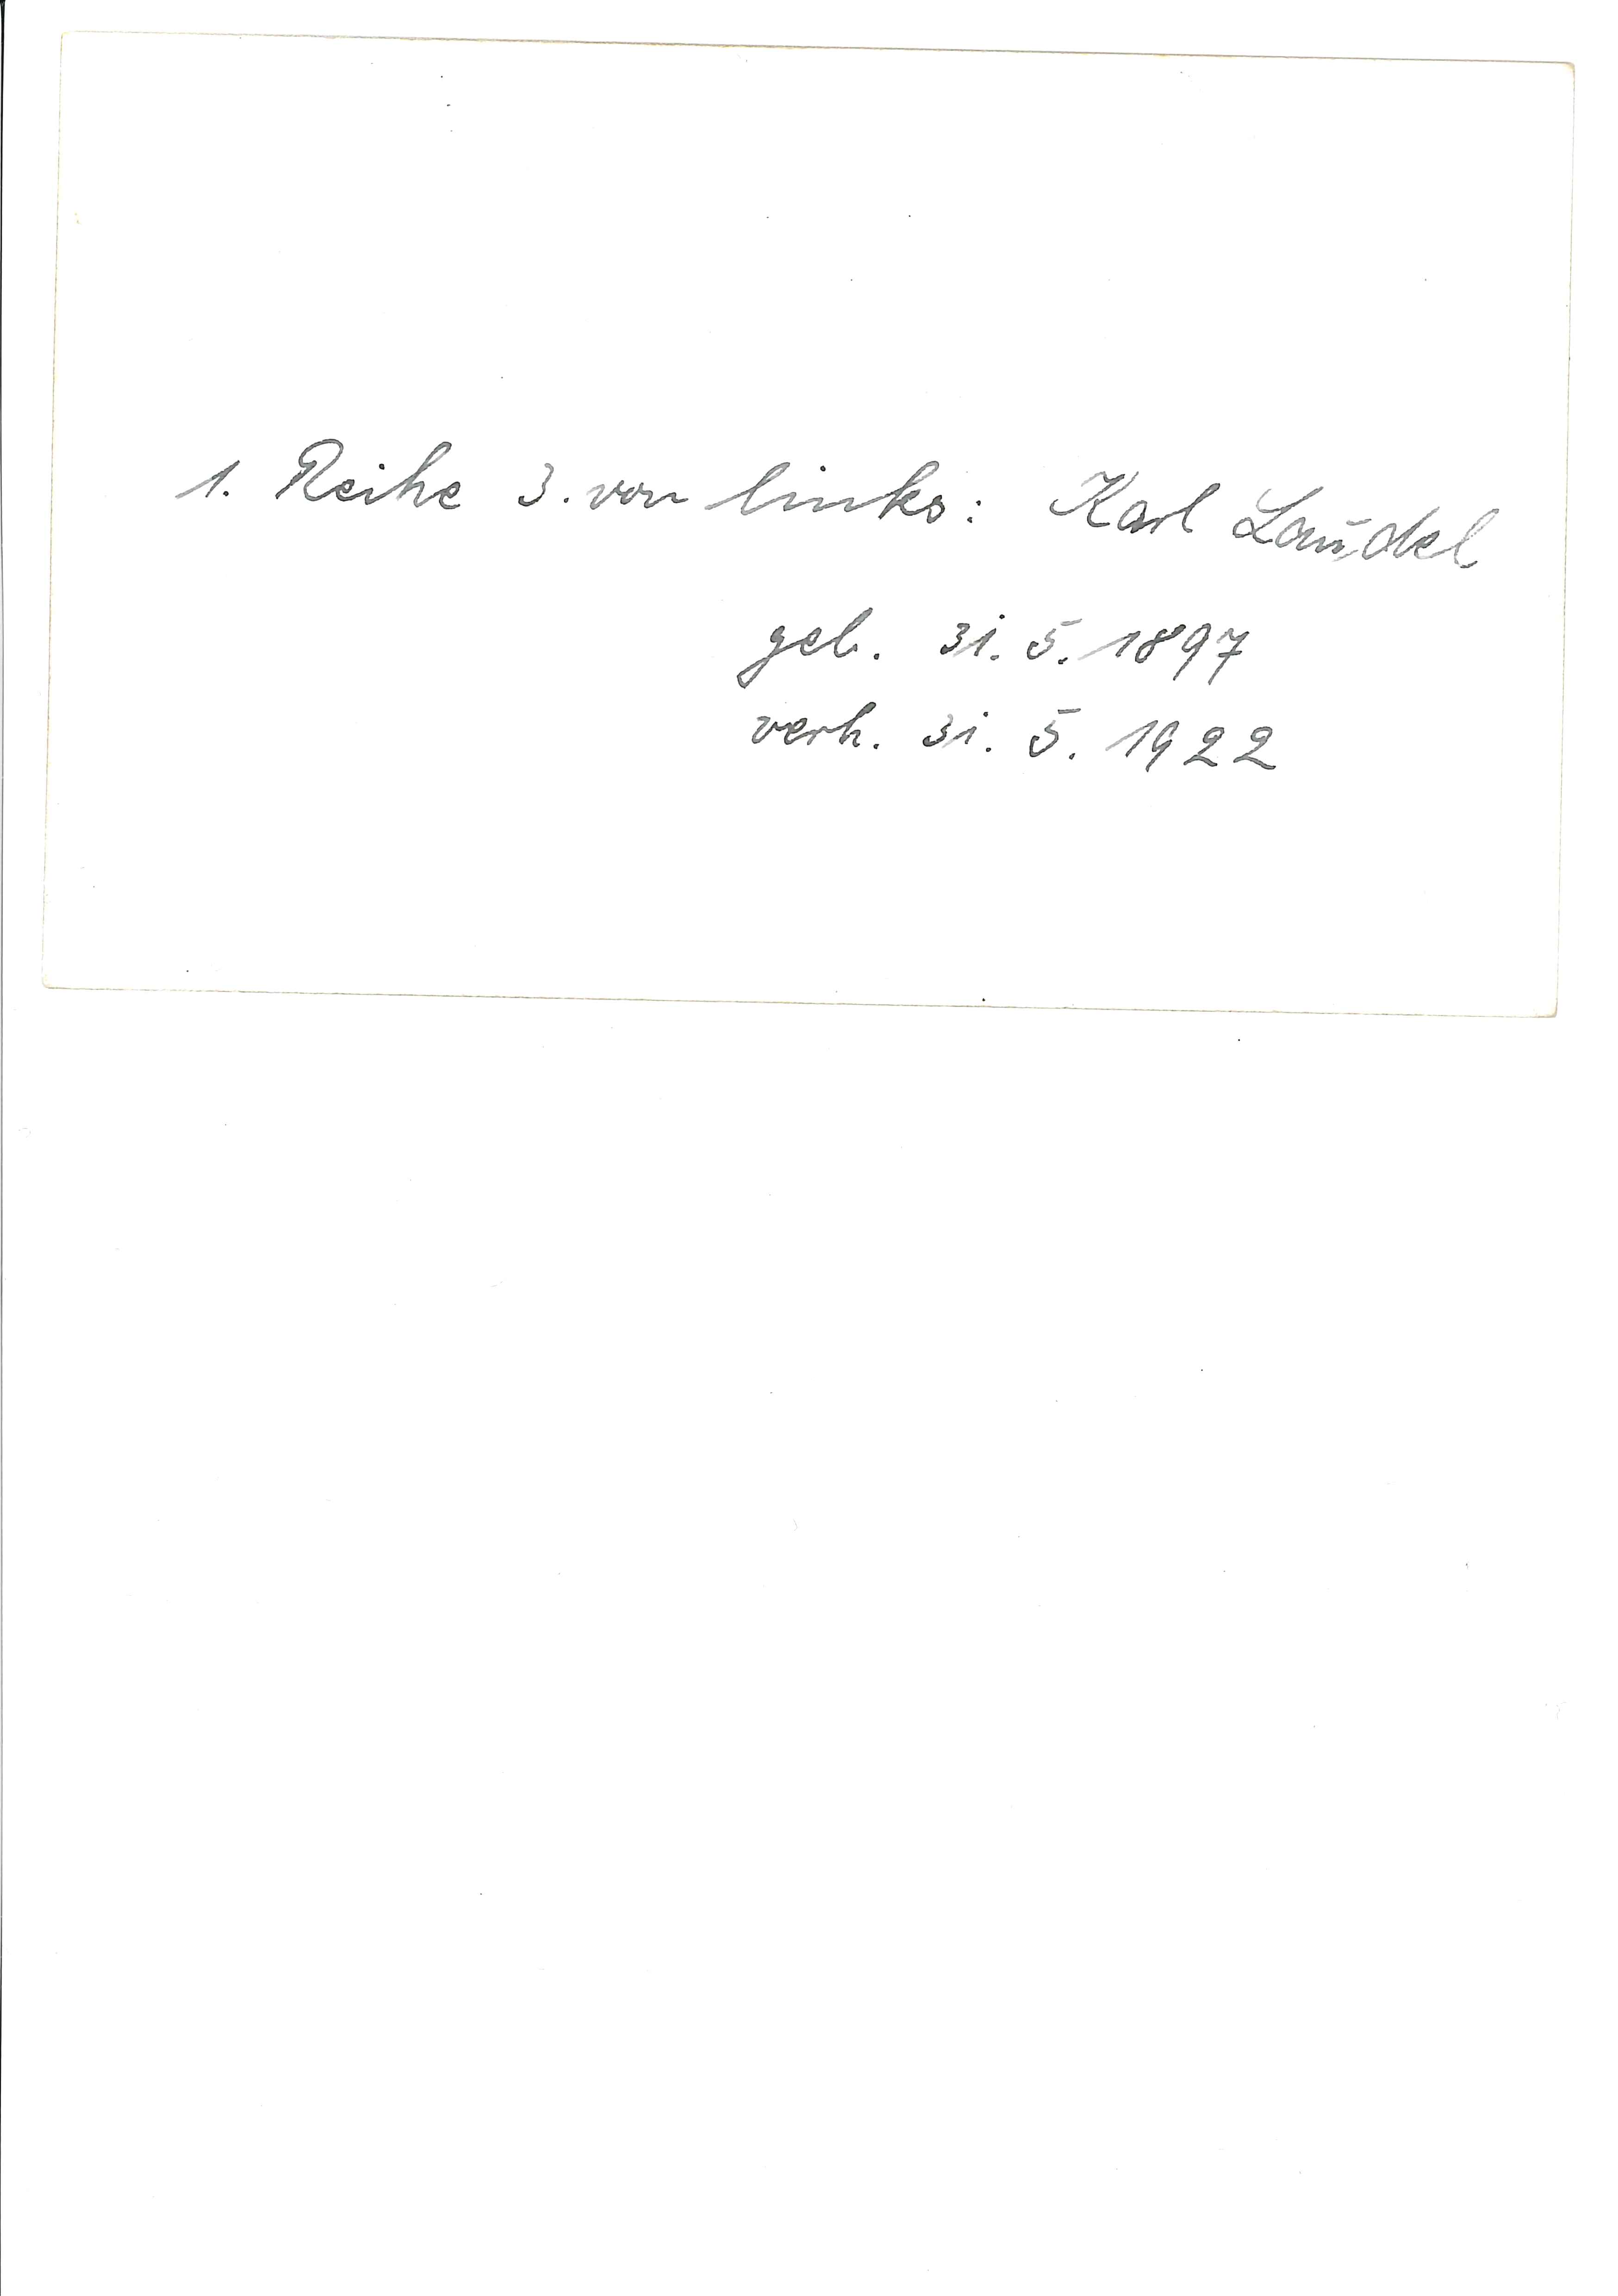 1. Reihe 3. von links: Karl Laudel
geb. 31. 5. 1897
verh. 31. 5. 1922